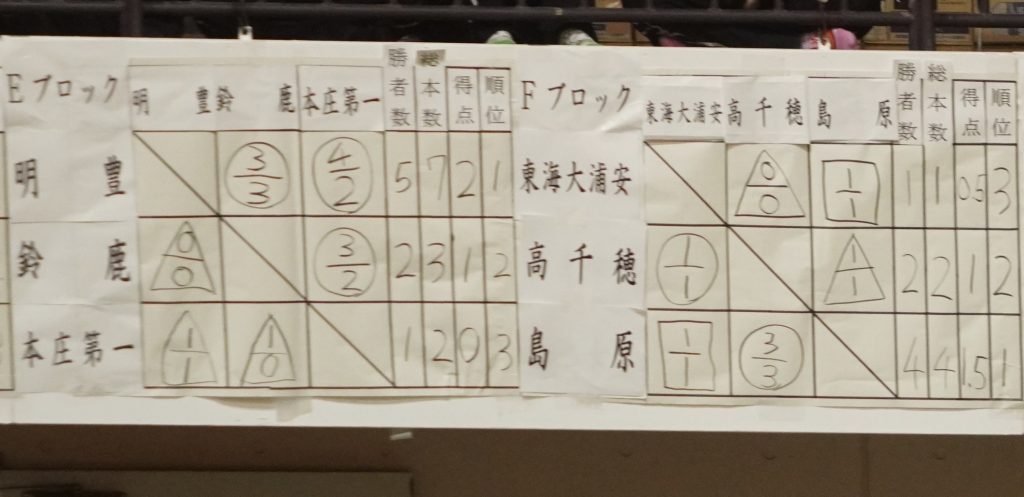 Eブロック 明豊 鈴鹿 本庄第一 勝者数 総本数 得点 順位
明豊 3/3 4/2 5 7 2 1
鈴鹿 0/0 3/2 2 3 1 2
本庄第一 1/1 1/0 1 2 0 3
Fブロック 東海大浦安 高千穂 島原 勝者数 総本数 得点 順位
東海大浦安 0/0 1/1 1 1 0.5 3
高千穂 1/1 1/1 2 2 1 2
島原 1/1 3/3 4 4 1.5 1